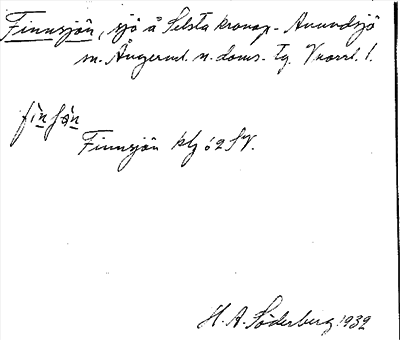 Finnsjön, sjö å Selsta kronop. Anundsjö
m. Ångerml. n. doms. tg. Vnorrl. l.
Finnsjön kbl 62 SV.
H. A. Söderberg 1932